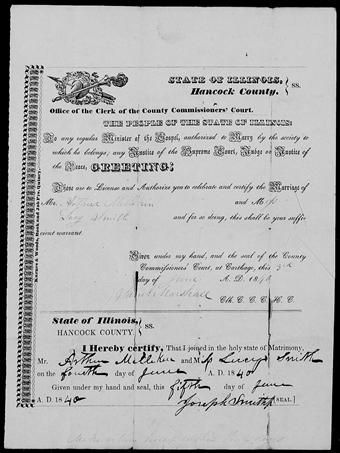 STATE OF ILLINOIS,
Hancock County,
} SS.
Office of the Clerk of the County Commissioners' Court.
THE PEOPLE OF THE STATE OF ILLINOIS:
To any regular Minister of the Gospel, authorized to Marry by the society to
which he belongs; any Justice of the Supreme Court, Judge or Justice of
the Peace, GREETING:
These are to License and Authorize you to celebrate and certify the Marriage of
Mr. Arthur Milliken and Miss
Lucy Smith and for so doing, this shall be your suffi-
cient warrant.
Given under my hand, and the seal of the County
Commissioners' Court, at Carthage, this 3rd
day of June A. D. 1840
Marshall
Clk. C. C. C. H. C.
State of Illinois,
HANCOCK COUNTY.
} SS.
I Hereby certify, That I joined in the holy state of Matrimony,
Mr. Arthur Milliken and Miss Lucy Smith
on the fourth day of June A. D. 1840
Given under my hand and seal, this fifth day of June
A. D. 1840
Joseph Smith [SEAL.]